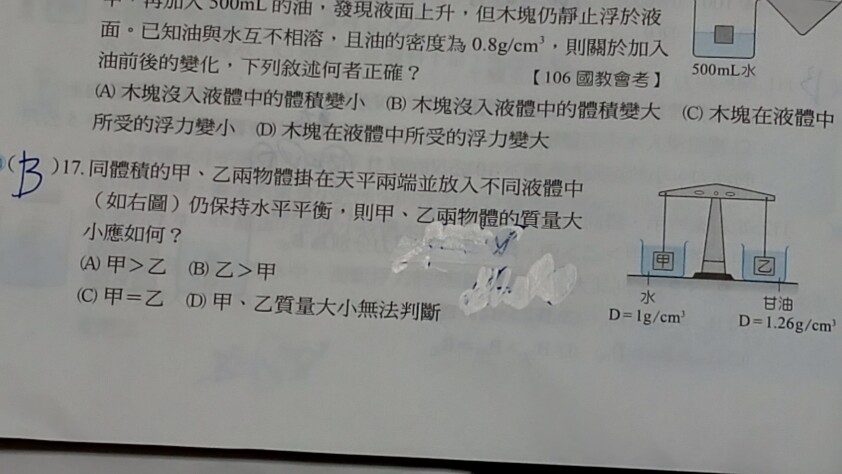 再加入 500mL 的油，發現液面上升，但木塊仍靜止浮於液
面。已知油與水互不相溶，且油的密度為 0.8g/cm³，則關於加入
油前後的變化，下列敘述何者正確？ 【106 國教會考】
(A) 木塊沒入液體中的體積變小 (B) 木塊沒入液體中的體積變大 (C) 木塊在液體中
所受的浮力變小 (D) 木塊在液體中所受的浮力變大
500mL水
(B)17. 同體積的甲、乙兩物體掛在天平兩端並放入不同液體中
（如右圖）仍保持水平平衡，則甲、乙兩物體的質量大
小應如何？
(A) 甲＞乙 (B) 乙＞甲
(C) 甲＝乙 (D) 甲、乙質量大小無法判斷
甲 乙
水 甘油
D=1g/cm³ D=1.26g/cm³